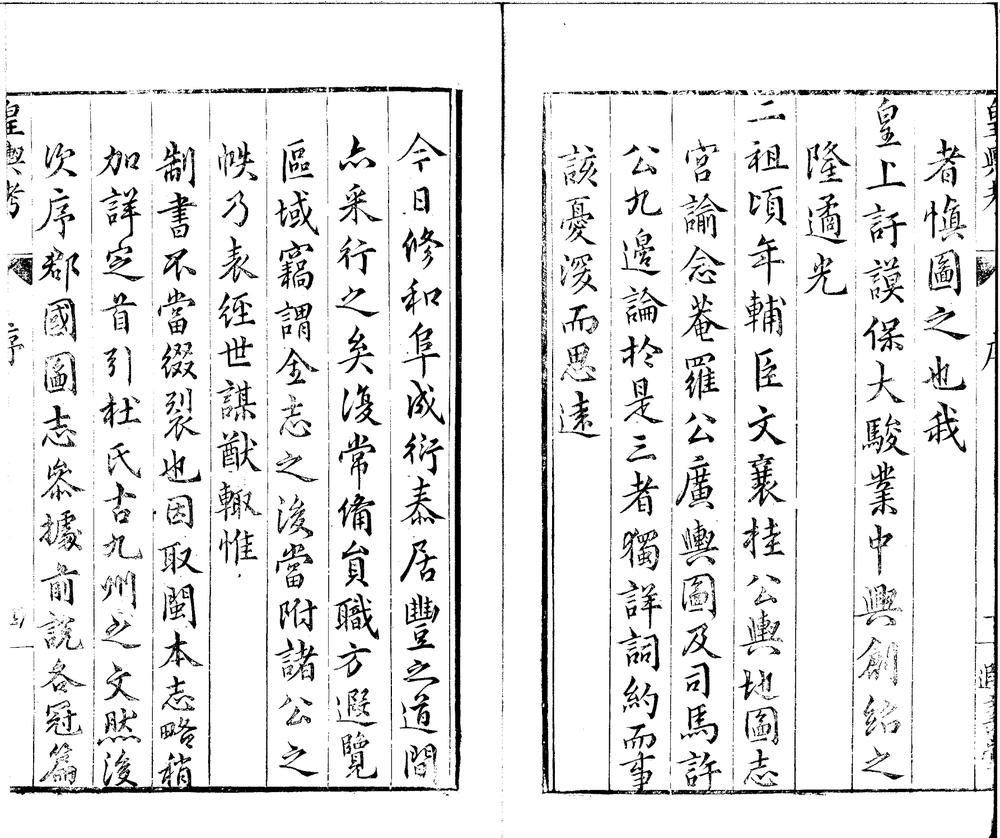 者慎圖之也我
皇上訏謨保大駿業中興創紹之
隆遹光
二祖頃年輔臣文襄桂公輿地圖志
宮諭念菴羅公廣輿圖及司馬許
公九邊論於是三者獨詳詞約而事
該憂深而思遠
今日修和阜成衍泰居豐之道間
亦采行之矣復常備員職方遐覽
區域竊謂全志之後當附諸公之
帙乃表經世謀猷輙惟
制書不當綴裂也因取閩本志略稍
加詳定首引杜氏古九州之文然後
次序郡國圖志叅據前說各冠篇
皇輿考
序